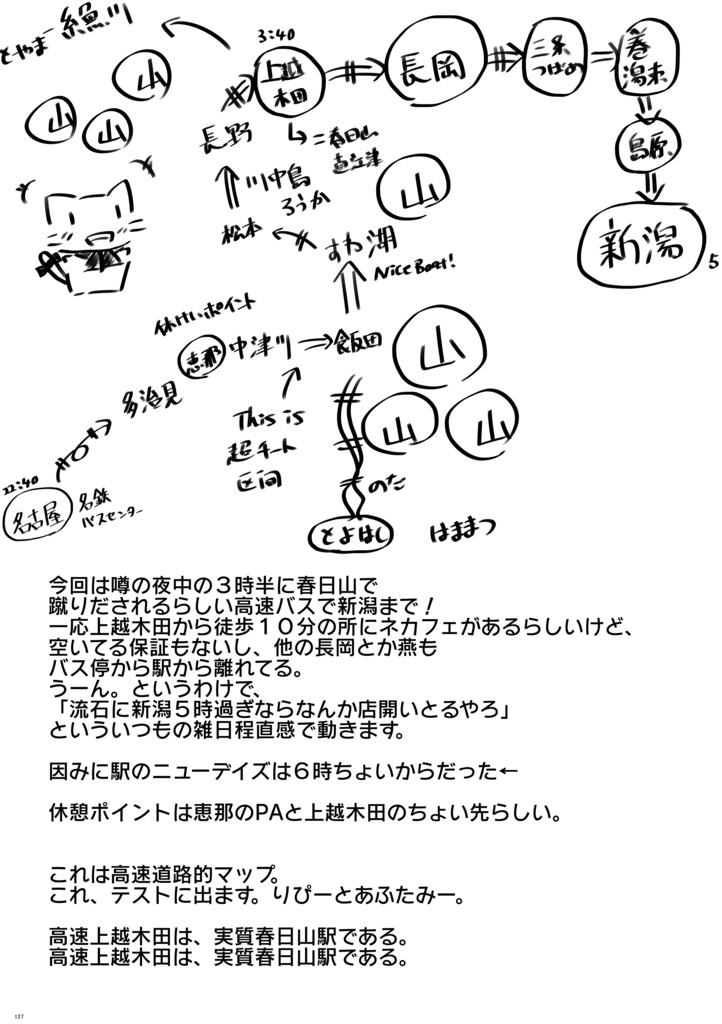 とやま
糸魚川
3:40
上越
木田
長岡
三条
つばめ
巻
潟東
鳥原
新潟
5
山
山
山
長野
=春日山
直江津
川中島
ろうか
山
松本
すわ湖
Nice Boat!
休けいポイント
恵那
中津川
飯田
山
山
山
多治見
This is
超チート
区間
22:40
名古屋
名鉄
バスセンター
のだ
とよはし
はままつ
今回は噂の夜中の３時半に春日山で
蹴りだされるらしい高速バスで新潟まで！
一応上越木田から徒歩１０分の所にネカフェがあるらしいけど、
空いてる保証もないし、他の長岡とか燕も
バス停から駅から離れてる。
うーん。というわけで、
「流石に新潟５時過ぎならなんか店開いとるやろ」
といういつもの雑日程直感で動きます。
因みに駅のニューデイズは６時ちょいからだった←
休憩ポイントは恵那のPAと上越木田のちょい先らしい。
これは高速道路的マップ。
これ、テストに出ます。りぴーとあふたみー。
高速上越木田は、実質春日山駅である。
高速上越木田は、実質春日山駅である。
127